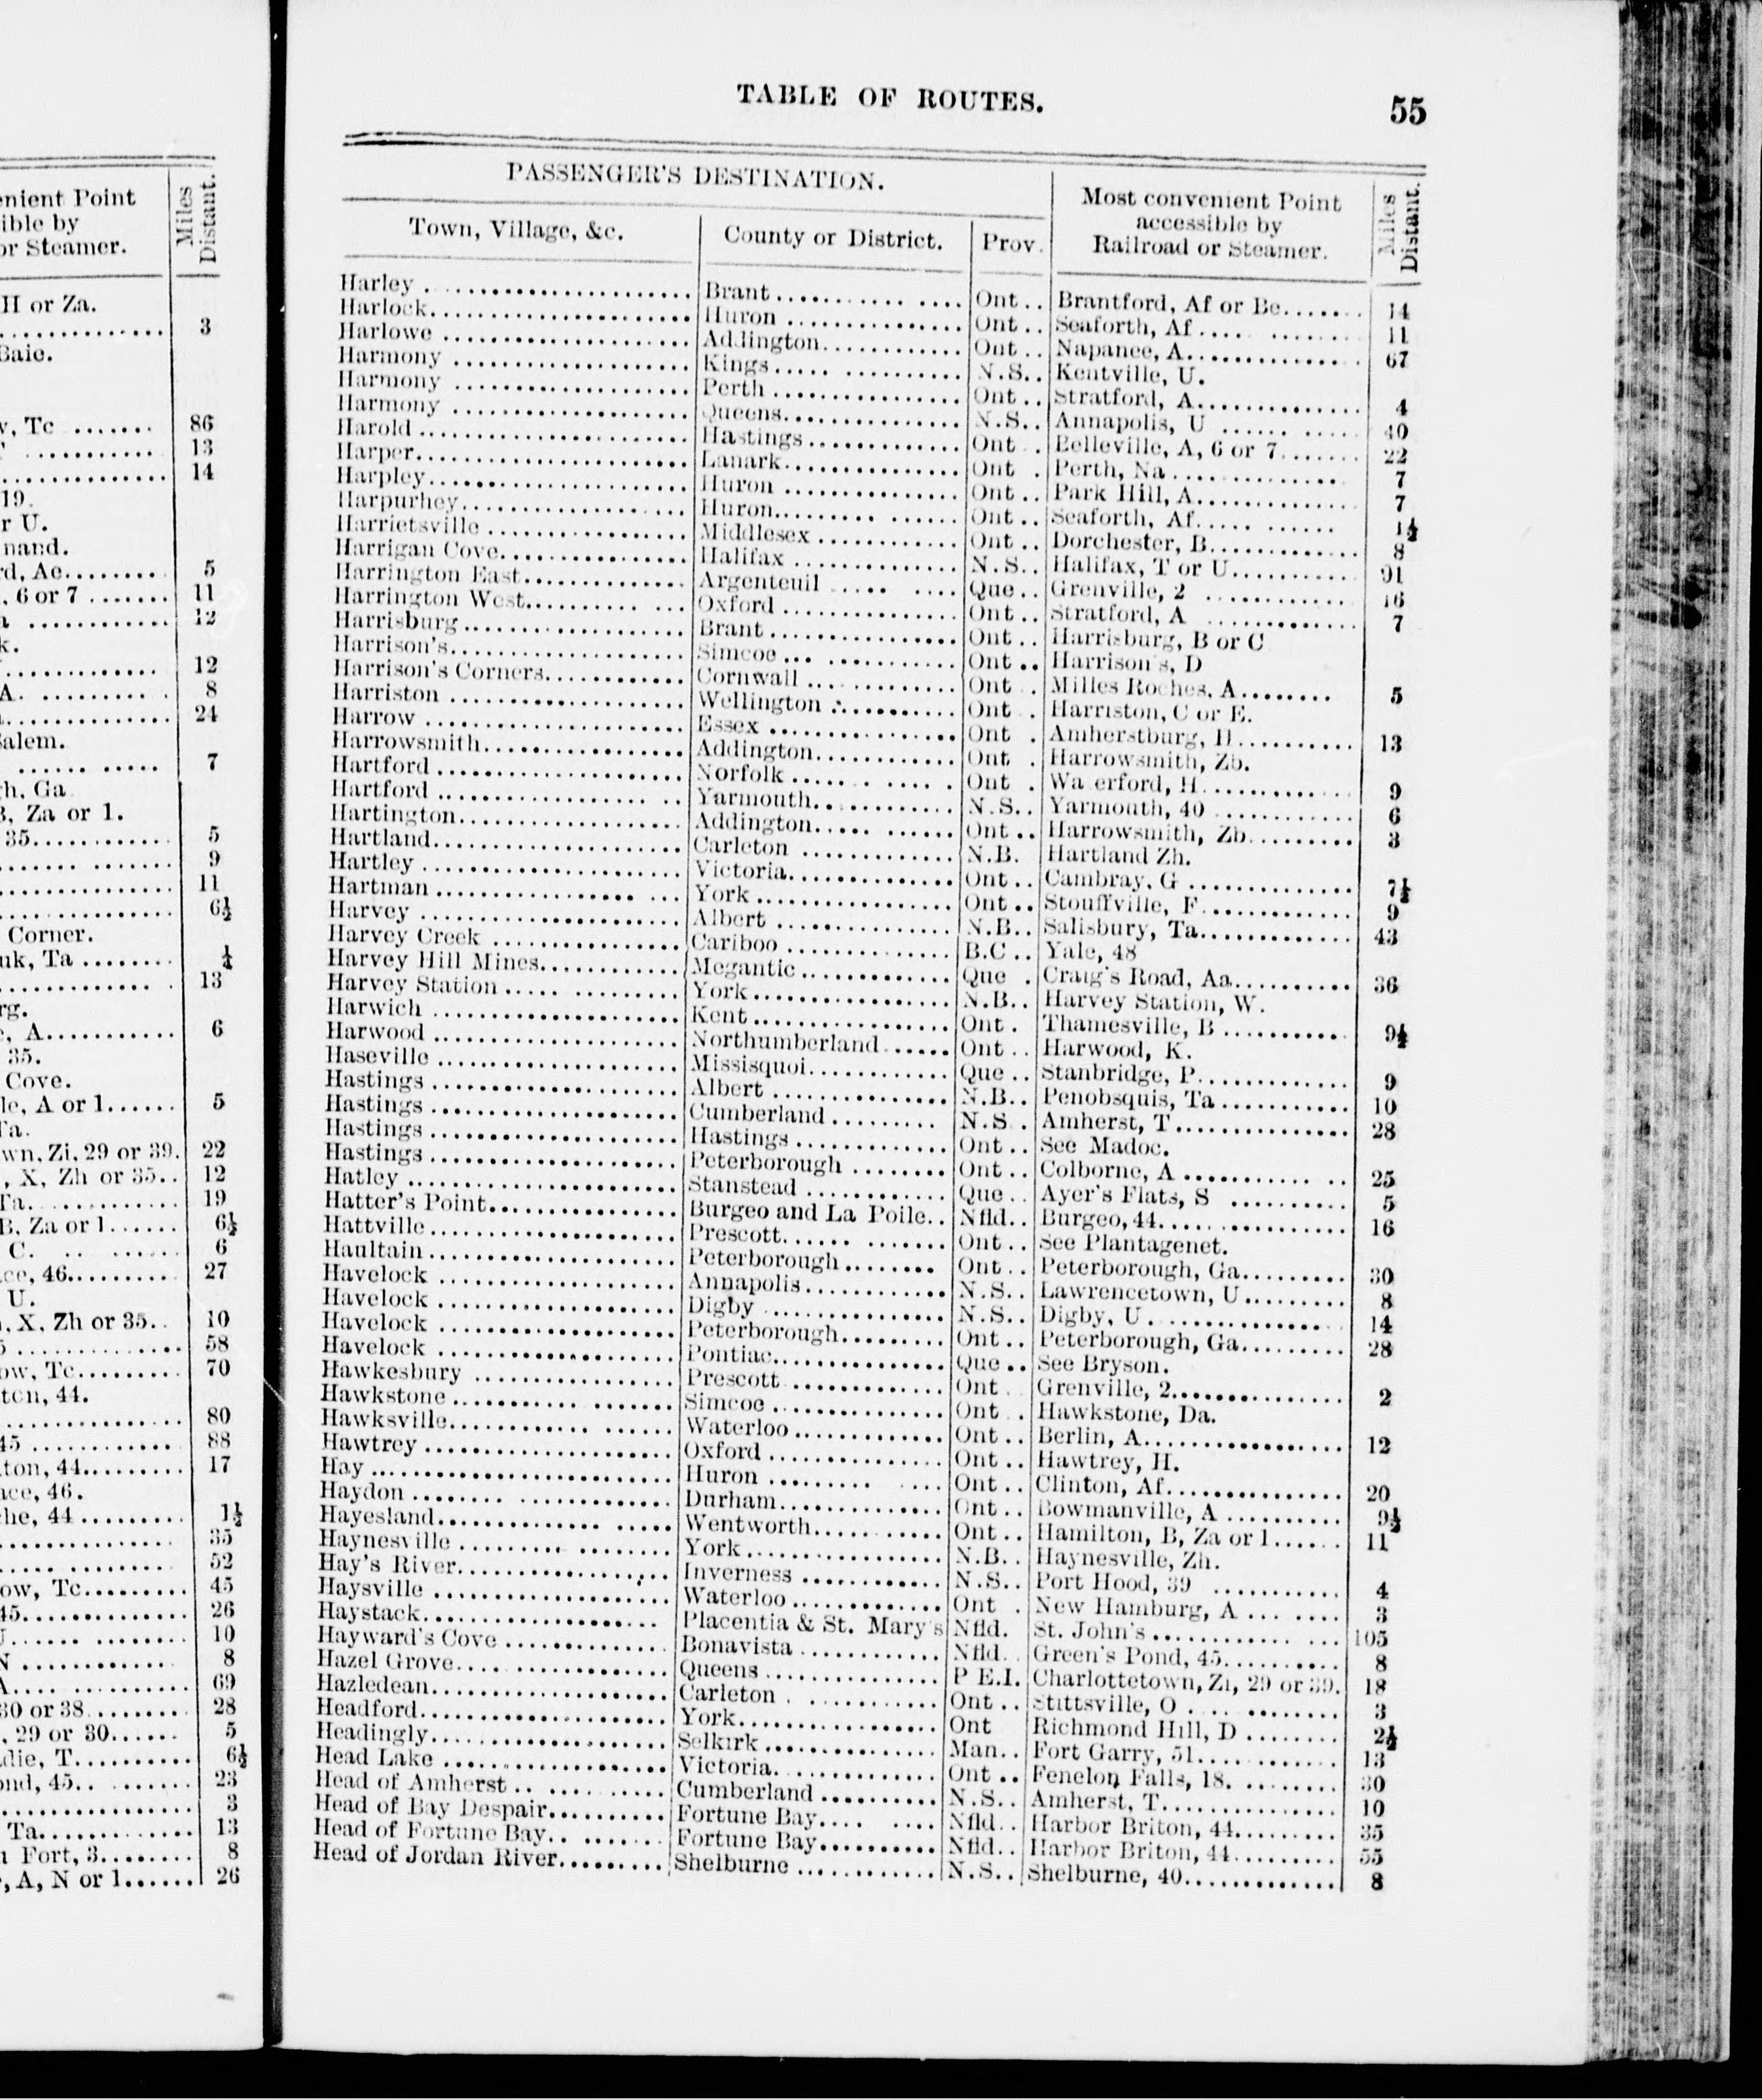 enient Point
ible by
or Steamer.
Miles Distant.
H or Za.
3
Baie.
v, Tc ....... 86
13
14
19.
r U.
nand.
rd, Ac......... 5
, 6 or 7 ....... 11
12
k.
12
A. 8
24
Salem.
7
gh, Ga
B, Za or 1.
35............ 5
9
11
6½
Corner.
uk, Ta ........ ¼
13
rg.
e, A........... 6
35.
Cove.
le, A or 1...... 5
Ta.
wn, Zi, 29 or 39. 22
, X, Zh or 35.. 12
Ta. 19
B, Za or 1...... 6½
C. 6
ce, 46.......... 27
U.
, X, Zh or 35.. 10
58
ow, Tc......... 70
ton, 44.
80
45 ............ 88
ton, 44......... 17
ace, 46.
che, 44 ......... 1½
35
52
ow, Tc......... 45
45.............. 26
10
N ............. 8
A. 69
30 or 38. 28
, 29 or 30...... 5
die, T........... 6½
ond, 45. 23
3
Ta............. 13
Fort, 3........ 8
, A, N or 1...... 26
TABLE OF ROUTES. 55
PASSENGER'S DESTINATION.
Most convenient Point accessible by Railroad or Steamer.
Miles Distant.
Town, Village, &c. County or District. Prov.
Harley ... Brant ... Ont.. Brantford, Af or Be ... 14
Harlock ... Huron ... Ont.. Seaforth, Af ... 11
Harlowe ... Addington ... Ont.. Napanee, A ... 67
Harmony ... Kings ... N.S.. Kentville, U.
Harmony ... Perth ... Ont.. Stratford, A ... 4
Harmony ... Queens ... N.S.. Annapolis, U ... 40
Harold ... Hastings ... Ont.. Belleville, A, 6 or 7 ... 22
Harper ... Lanark ... Ont. Perth, Na ... 7
Harpley ... Huron ... Ont.. Park Hill, A ... 7
Harpurhey ... Huron ... Ont.. Seaforth, Af ... 1½
Harrietsville ... Middlesex ... Ont.. Dorchester, B ... 8
Harrigan Cove ... Halifax ... N.S.. Halifax, T or U ... 91
Harrington East ... Argenteuil ... Que.. Grenville, 2 ... 16
Harrington West ... Oxford ... Ont.. Stratford, A ... 7
Harrisburg ... Brant ... Ont.. Harrisburg, B or C
Harrison's ... Simcoe ... Ont.. Harrison's, D
Harrison's Corners ... Cornwall ... Ont.. Milles Roches, A ... 5
Harriston ... Wellington ... Ont. Harriston, C or E.
Harrow ... Essex ... Ont. Amherstburg, H ... 13
Harrowsmith ... Addington ... Ont. Harrowsmith, Zb.
Hartford ... Norfolk ... Ont. Wa erford, H ... 9
Hartford ... Yarmouth ... N.S.. Yarmouth, 40 ... 6
Hartington ... Addington ... Ont.. Harrowsmith, Zb ... 3
Hartland ... Carleton ... N.B. Hartland Zh.
Hartley ... Victoria ... Ont.. Cambray, G ... 7½
Hartman ... York ... Ont.. Stouffville, F ... 9
Harvey ... Albert ... N.B.. Salisbury, Ta ... 43
Harvey Creek ... Cariboo ... B.C.. Yale, 48
Harvey Hill Mines ... Megantic ... Que. Craig's Road, Aa ... 36
Harvey Station ... York ... N.B.. Harvey Station, W.
Harwich ... Kent ... Ont. Thamesville, B ... 9½
Harwood ... Northumberland ... Ont.. Harwood, K.
Haseville ... Missisquoi ... Que.. Stanbridge, P ... 9
Hastings ... Albert ... N.B.. Penobsquis, Ta ... 10
Hastings ... Cumberland ... N.S. Amherst, T ... 28
Hastings ... Hastings ... Ont.. See Madoc.
Hastings ... Peterborough ... Ont.. Colborne, A ... 25
Hatley ... Stanstead ... Que.. Ayer's Flats, S ... 5
Hatter's Point ... Burgeo and La Poile.. Nfld.. Burgeo, 44 ... 16
Hattville ... Prescott ... Ont.. See Plantagenet.
Haultain ... Peterborough ... Ont.. Peterborough, Ga ... 30
Havelock ... Annapolis ... N.S.. Lawrencetown, U ... 8
Havelock ... Digby ... N.S.. Digby, U ... 14
Havelock ... Peterborough ... Ont.. Peterborough, Ga ... 28
Havelock ... Pontiac ... Que.. See Bryson.
Hawkesbury ... Prescott ... Ont. Grenville, 2 ... 2
Hawkstone ... Simcoe ... Ont.. Hawkstone, Da.
Hawksville ... Waterloo ... Ont.. Berlin, A ... 12
Hawtrey ... Oxford ... Ont.. Hawtrey, H.
Hay ... Huron ... Ont.. Clinton, Af ... 20
Haydon ... Durham ... Ont.. Bowmanville, A ... 9½
Hayesland ... Wentworth ... Ont.. Hamilton, B, Za or 1 ... 11
Haynesville ... York ... N.B.. Haynesville, Zh.
Hay's River ... Inverness ... N.S.. Port Hood, 39 ... 4
Haysville ... Waterloo ... Ont. New Hamburg, A ... 3
Haystack ... Placentia & St. Mary's Nfld. St. John's ... 105
Hayward's Cove ... Bonavista ... Nfld.. Green's Pond, 45 ... 8
Hazel Grove ... Queens ... P E.I. Charlottetown, Zi, 29 or 39. 18
Hazledean ... Carleton ... Ont.. Stittsville, O ... 3
Headford ... York ... Ont Richmond Hill, D ... 2½
Headingly ... Selkirk ... Man.. Fort Garry, 51 ... 13
Head Lake ... Victoria ... Ont.. Fenelon Falls, 18 ... 30
Head of Amherst ... Cumberland ... N.S.. Amherst, T ... 10
Head of Bay Despair ... Fortune Bay ... Nfld.. Harbor Briton, 44 ... 35
Head of Fortune Bay ... Fortune Bay ... Nfld.. Harbor Briton, 44 ... 55
Head of Jordan River ... Shelburne ... N.S.. Shelburne, 40 ... 8